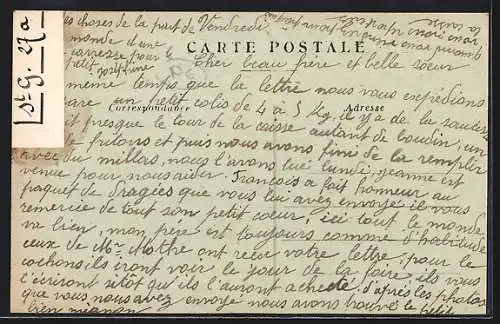 les choses de la part de Vendredi
monde d'une
caresse pour le
petit Joséphine
St. G. 27a
CARTE POSTALE
Correspondance
Adresse
Cher beau frère et belle sœur
même temps que la lettre nous vous expédions
gare un petit colis de 4 à 5 Kg, il y a de la saucisse
presque le tour de la caisse autant de boudin, un
de fritons et puis nous avons fini de la remplir
avec du millas, nous l'avons tué lundi, jeanne est
venue pour nous aider. François a fait honneur au
paquet de dragées que vous lui avez envoyé il vous
remercie de tout son petit cœur, ici tout le monde
va bien, mon père est toujours comme d'habitude
ceux de Mr Mothe ont reçu votre lettre, pour le
cochons ils iront voir le jour de la foire, ils vous
l'écriront sitôt qu'ils l'auront acheté. d'après les photos
que vous nous avez envoyé nous avons trouvé le petit
bien mignon